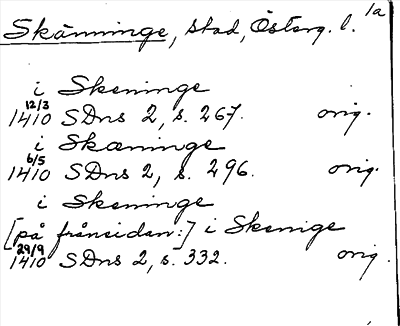 Skänninge, stad, Österg. l. 1a
i Skeninge
12/3
1410 SDns 2, s. 267. orig.
i Skæninge
6/5
1410 SDns 2, s. 296. orig.
i Skeninge
[på frånsidan:] i Skenige
29/9
1410 SDns 2, s. 332. orig.